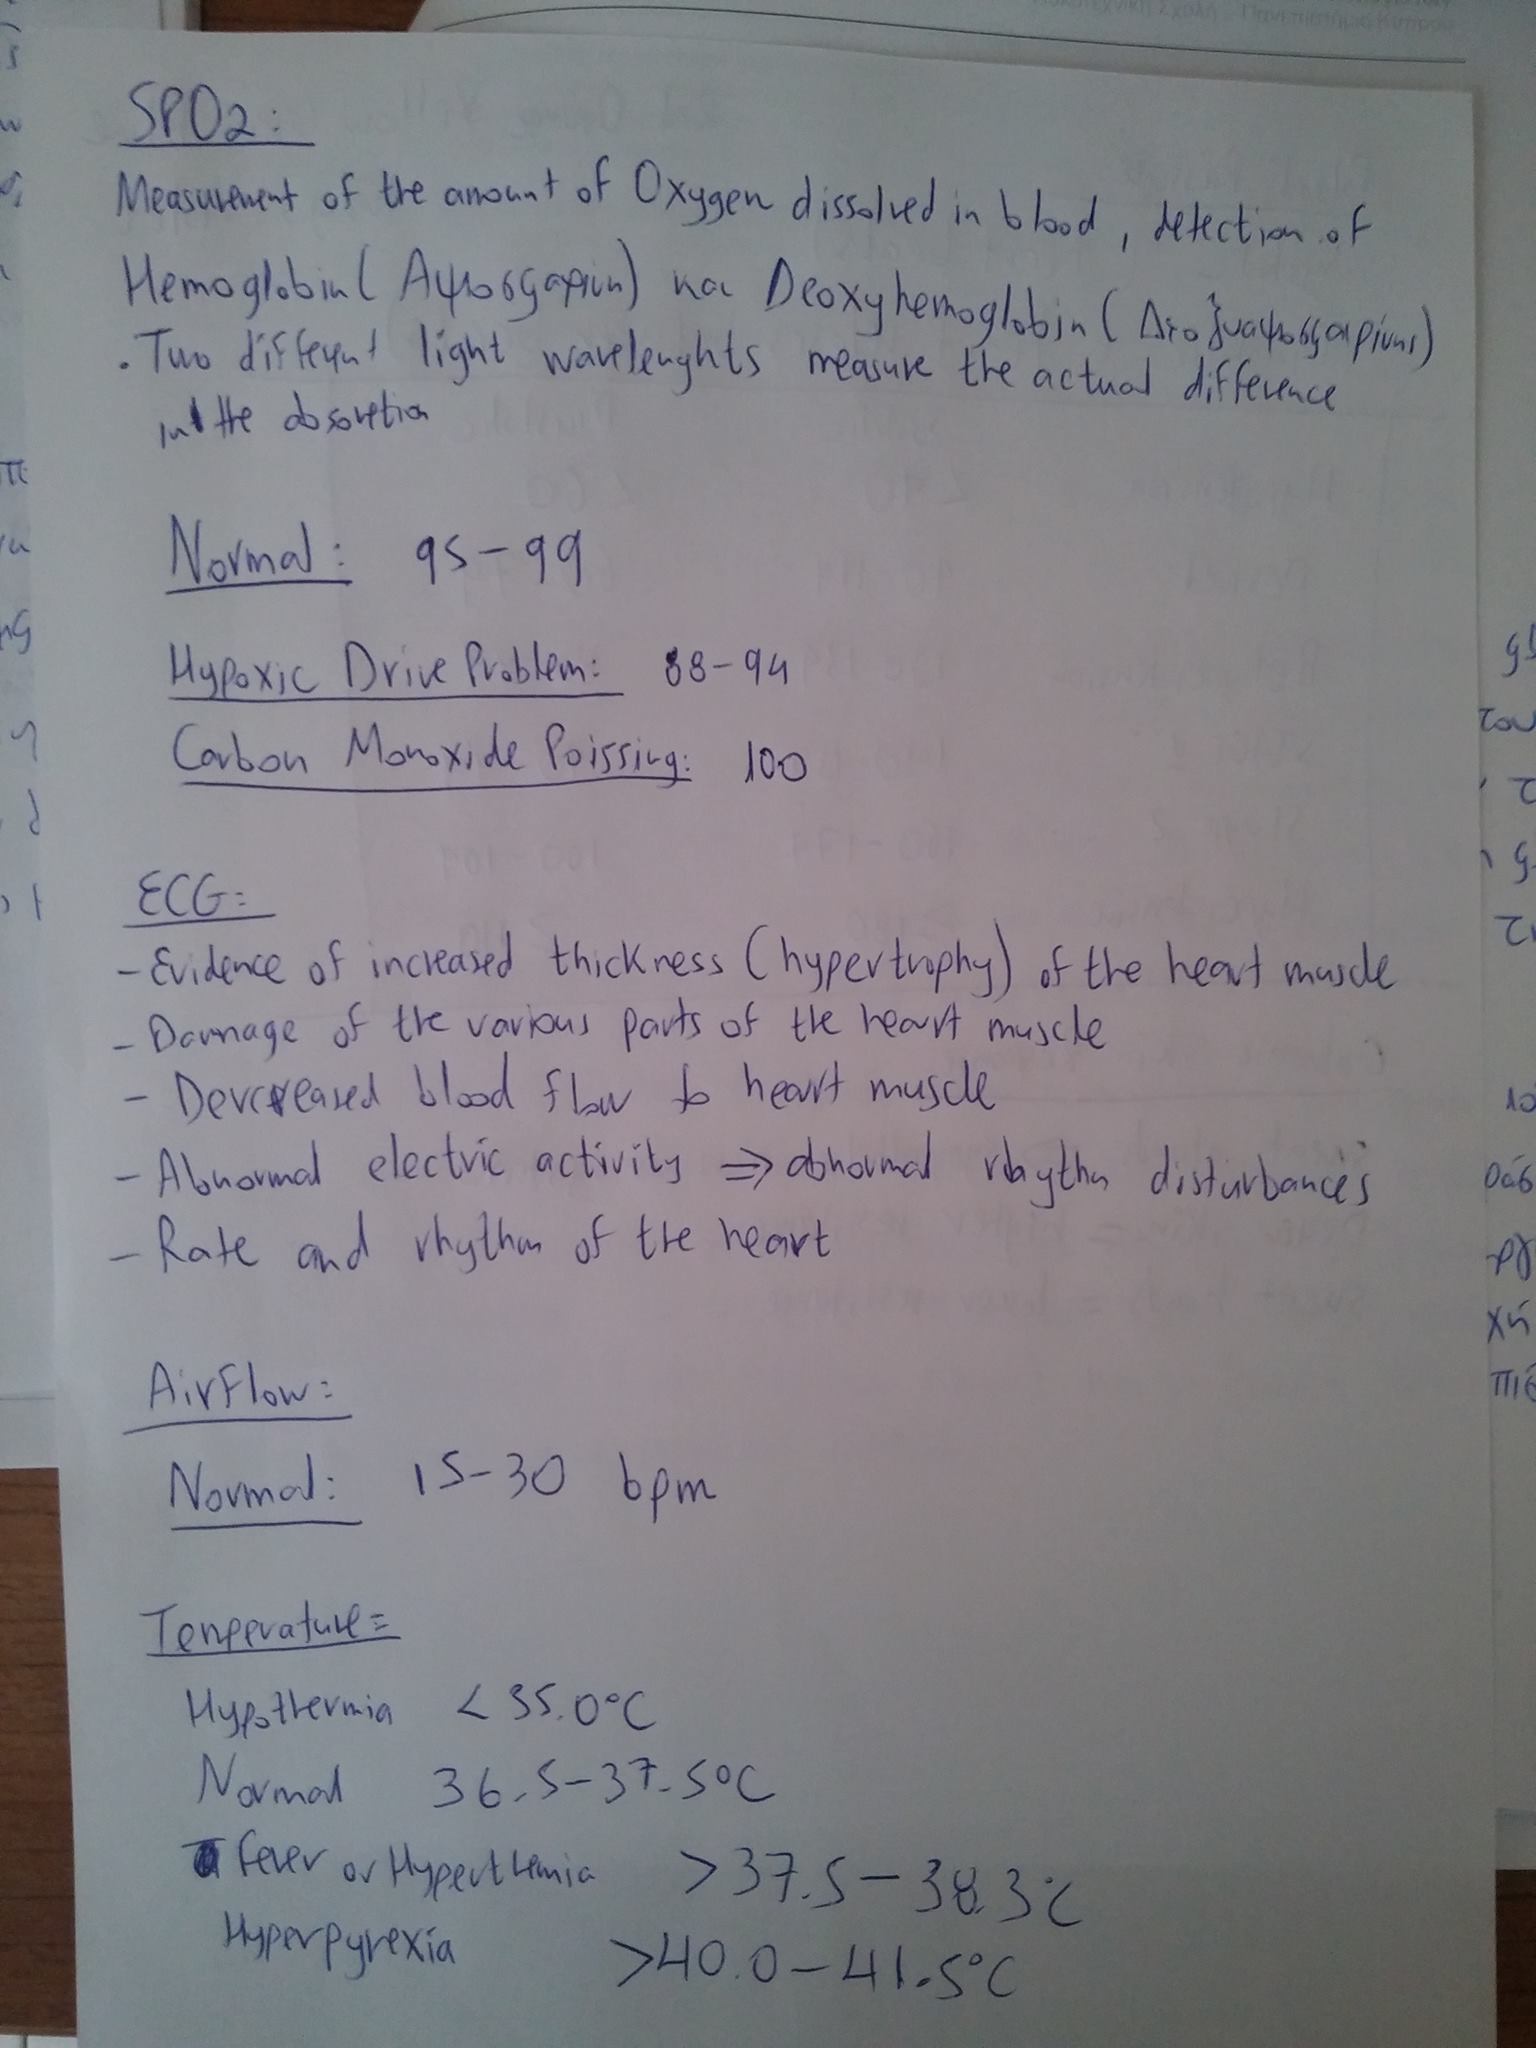 SPO2:
Measurement of the amount of Oxygen dissolved in blood, detection of
Hemoglobin( Αιμοσφαιρίνη) και Deoxyhemoglobin(
. Two different light wavelenghts measure the actual difference
in the absoretion
Normal: 95-99
Hypoxic Drive Problem: 88-94
Carbon Monoxide Poissing: 100
ECG:
- Evidence of increased thickness (hypertrophy) of the heart muscle
- Damage of the various parts of the heart muscle
- Devcreased blood flow to heart muscle
- Abnormal electric activity => abnormal rhaythm disturbances
- Rate and rhythm of the heart
AirFlow:
Normal: 15-30 bpm
Temperature:
Hypothermia < 35.0°C
Normal 36.5-37.5°C
Fever or Hyperthemia >37.5-38.3°C
Hyperpyrexia >40.0-41.5°C